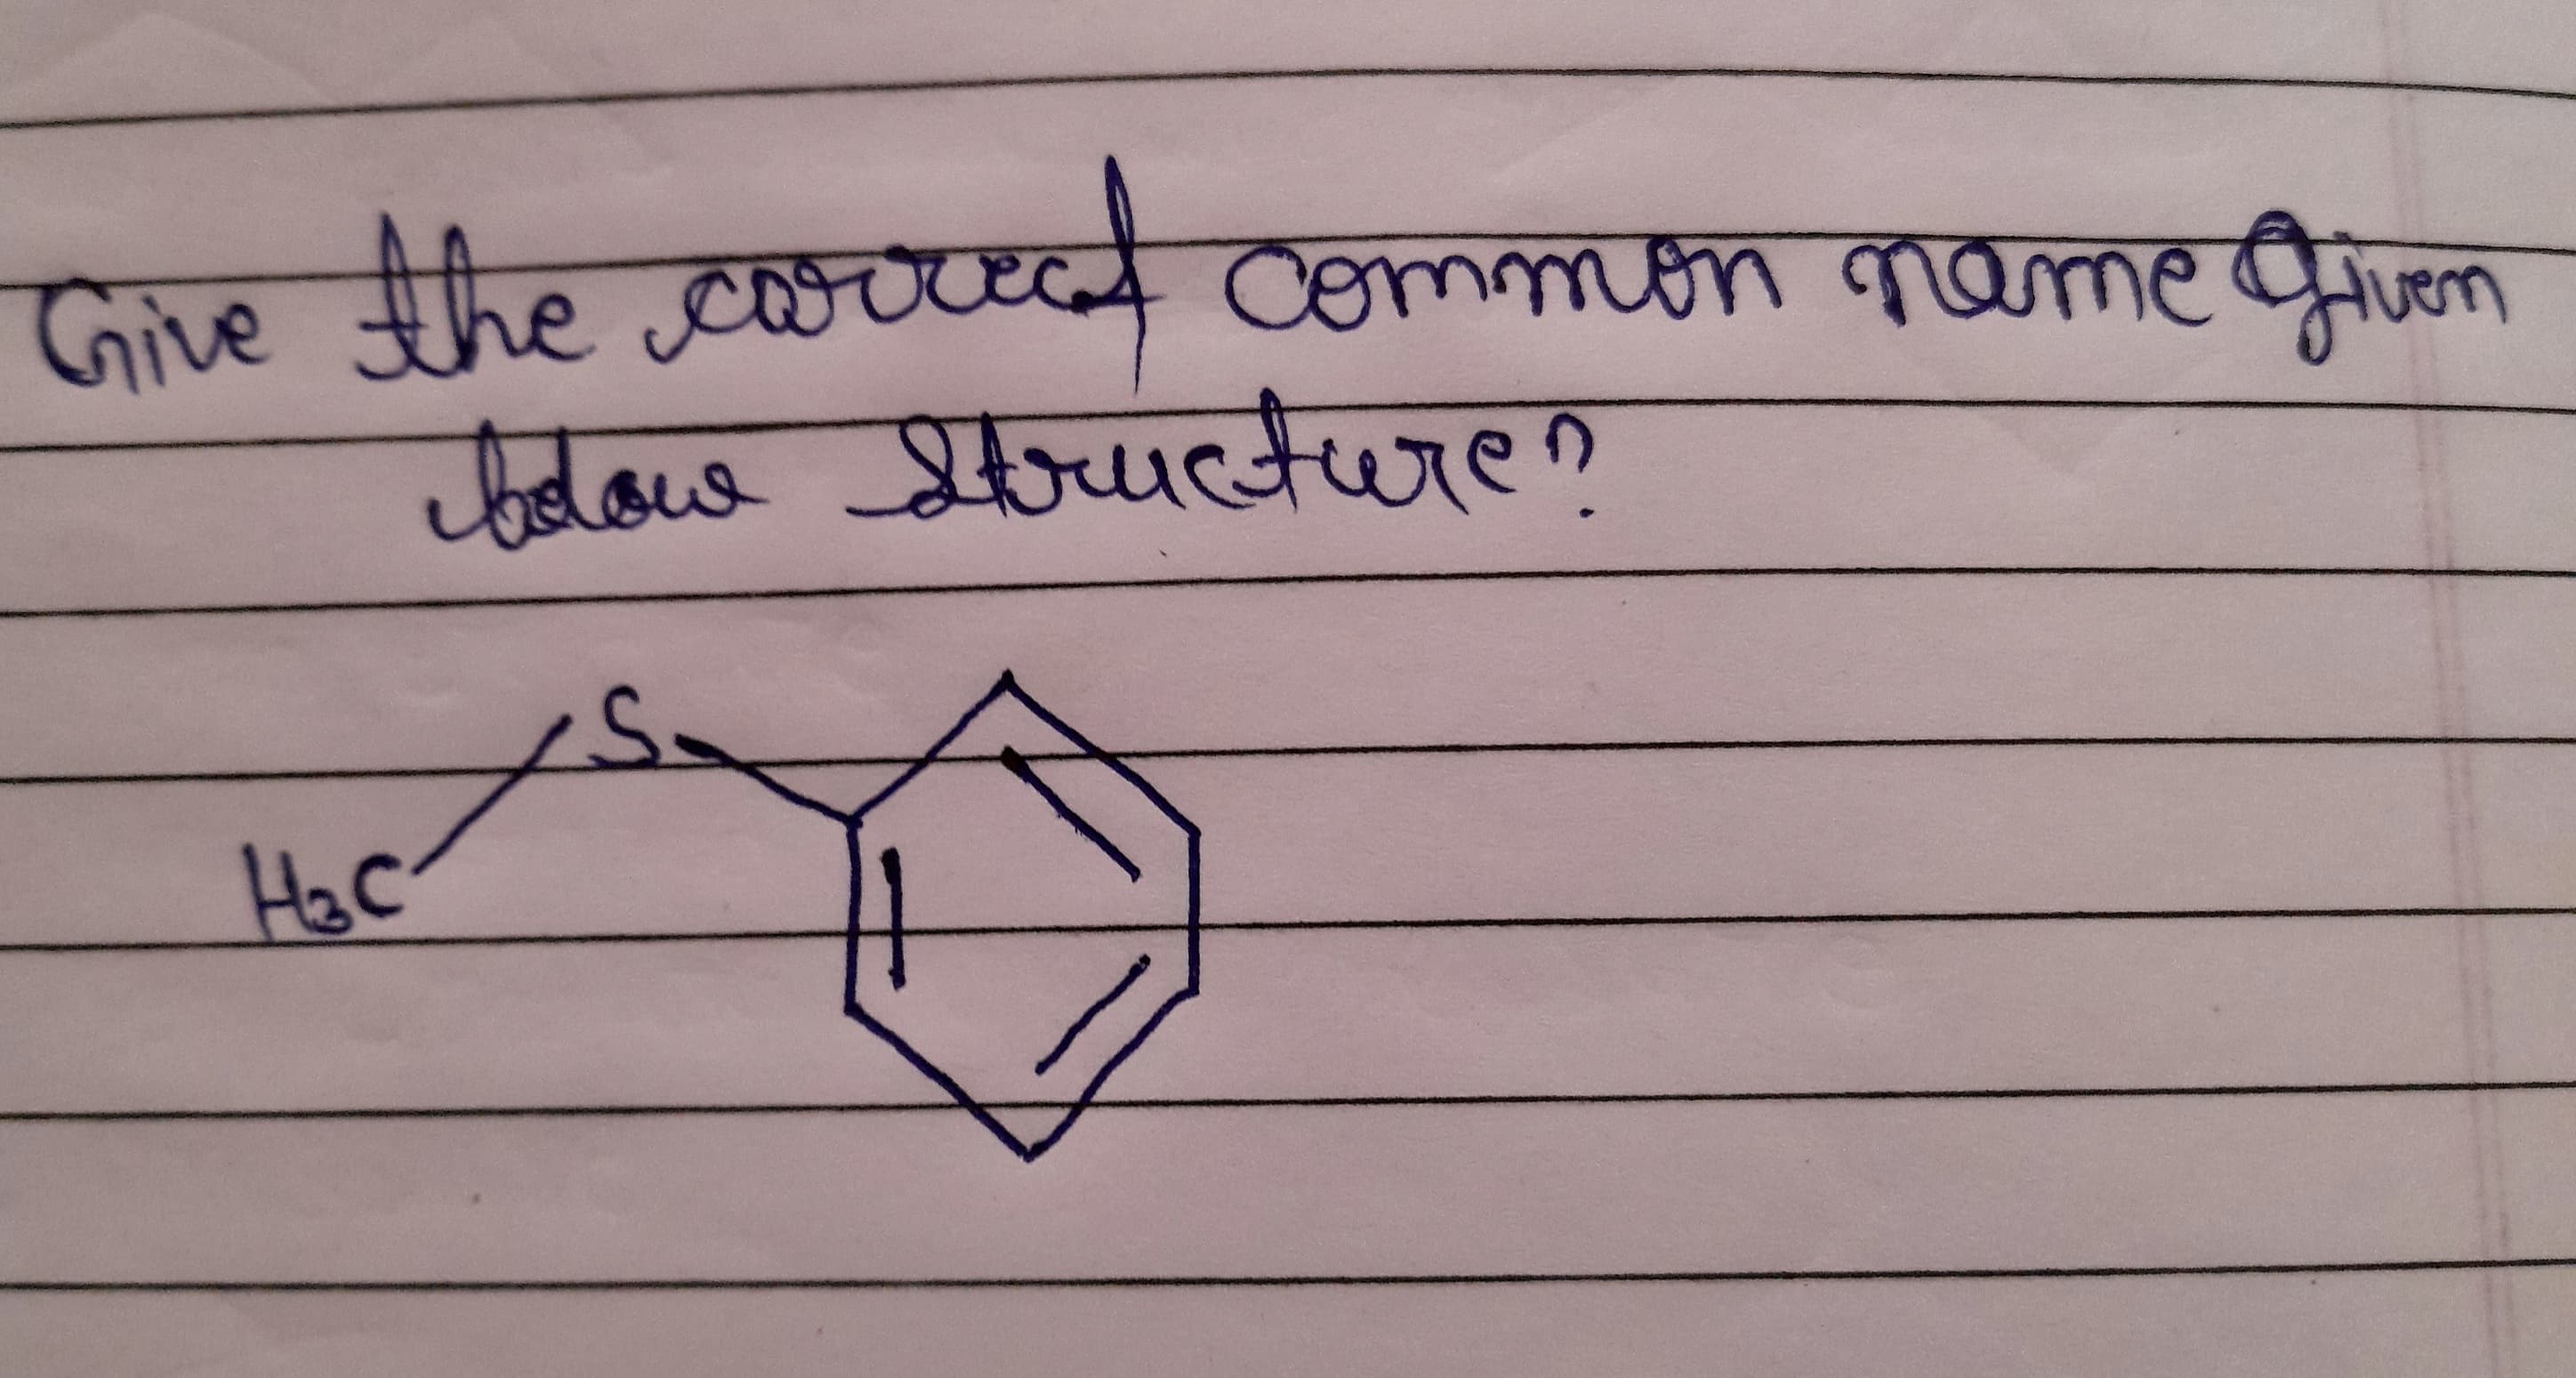 Give the correct common name Given
below structure?
S
H₃C